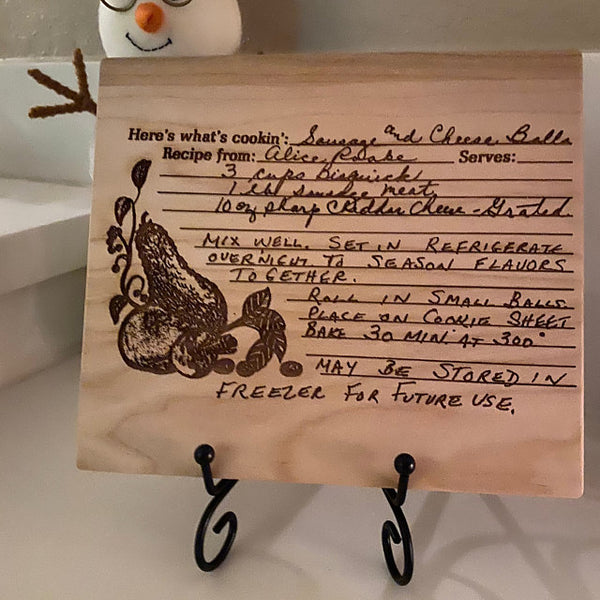 Here's what's cookin': Sausage and Cheese Balls
Recipe from: Alice Raabe Serves:
3 cups Bisquick
1 lb sausage meat
10 oz sharp Cheddar Cheese - Grated
MIX WELL. SET IN REFRIGERATE
OVERNIGHT TO SEASON FLAVORS
TOGETHER.
ROLL IN SMALL BALLS
PLACE ON COOKIE SHEET
BAKE 30 MIN. AT 300°
MAY BE STORED IN
FREEZER FOR FUTURE USE.